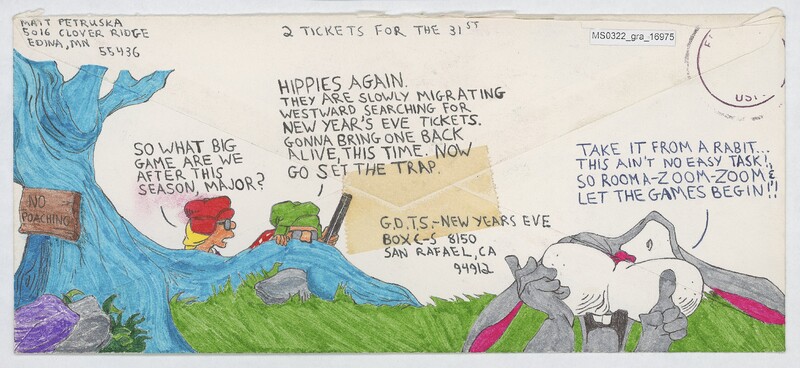 MATT PETRUSKA
5016 CLOVER RIDGE
EDINA, MN
55436
2 TICKETS FOR THE 31ST
MS0322_gra_16975
USP
HIPPIES AGAIN.
THEY ARE SLOWLY MIGRATING
WESTWARD SEARCHING FOR
NEW YEAR'S EVE TICKETS.
GONNA BRING ONE BACK
ALIVE, THIS TIME. NOW
GO SET THE TRAP.
SO WHAT BIG
GAME ARE WE
AFTER THIS
SEASON, MAJOR?
TAKE IT FROM A RABIT...
THIS AIN'T NO EASY TASK!
SO ROOMA-ZOOM-ZOOM &
LET THE GAMES BEGIN!!
NO
POACHING
G.D.T.S.-NEW YEARS EVE
BOX C-S 8150
SAN RAFAEL, CA
94912